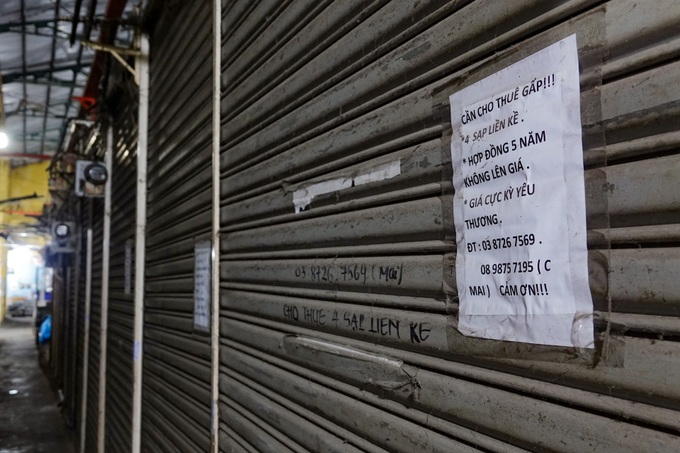 CẦN CHO THUÊ GẤP!!!
*4 SẠP LIỀN KỀ .
* HỢP ĐỒNG 5 NĂM
KHÔNG LÊN GIÁ .
* GIÁ CỰC KỲ YÊU
THƯƠNG .
ĐT : 03 8726 7569 .
08 9875 7195 ( C
MAI ) CẢM ƠN!!!
03 8726.7569 (Mai)
CHO THUÊ 4 SẠP LIEN KE